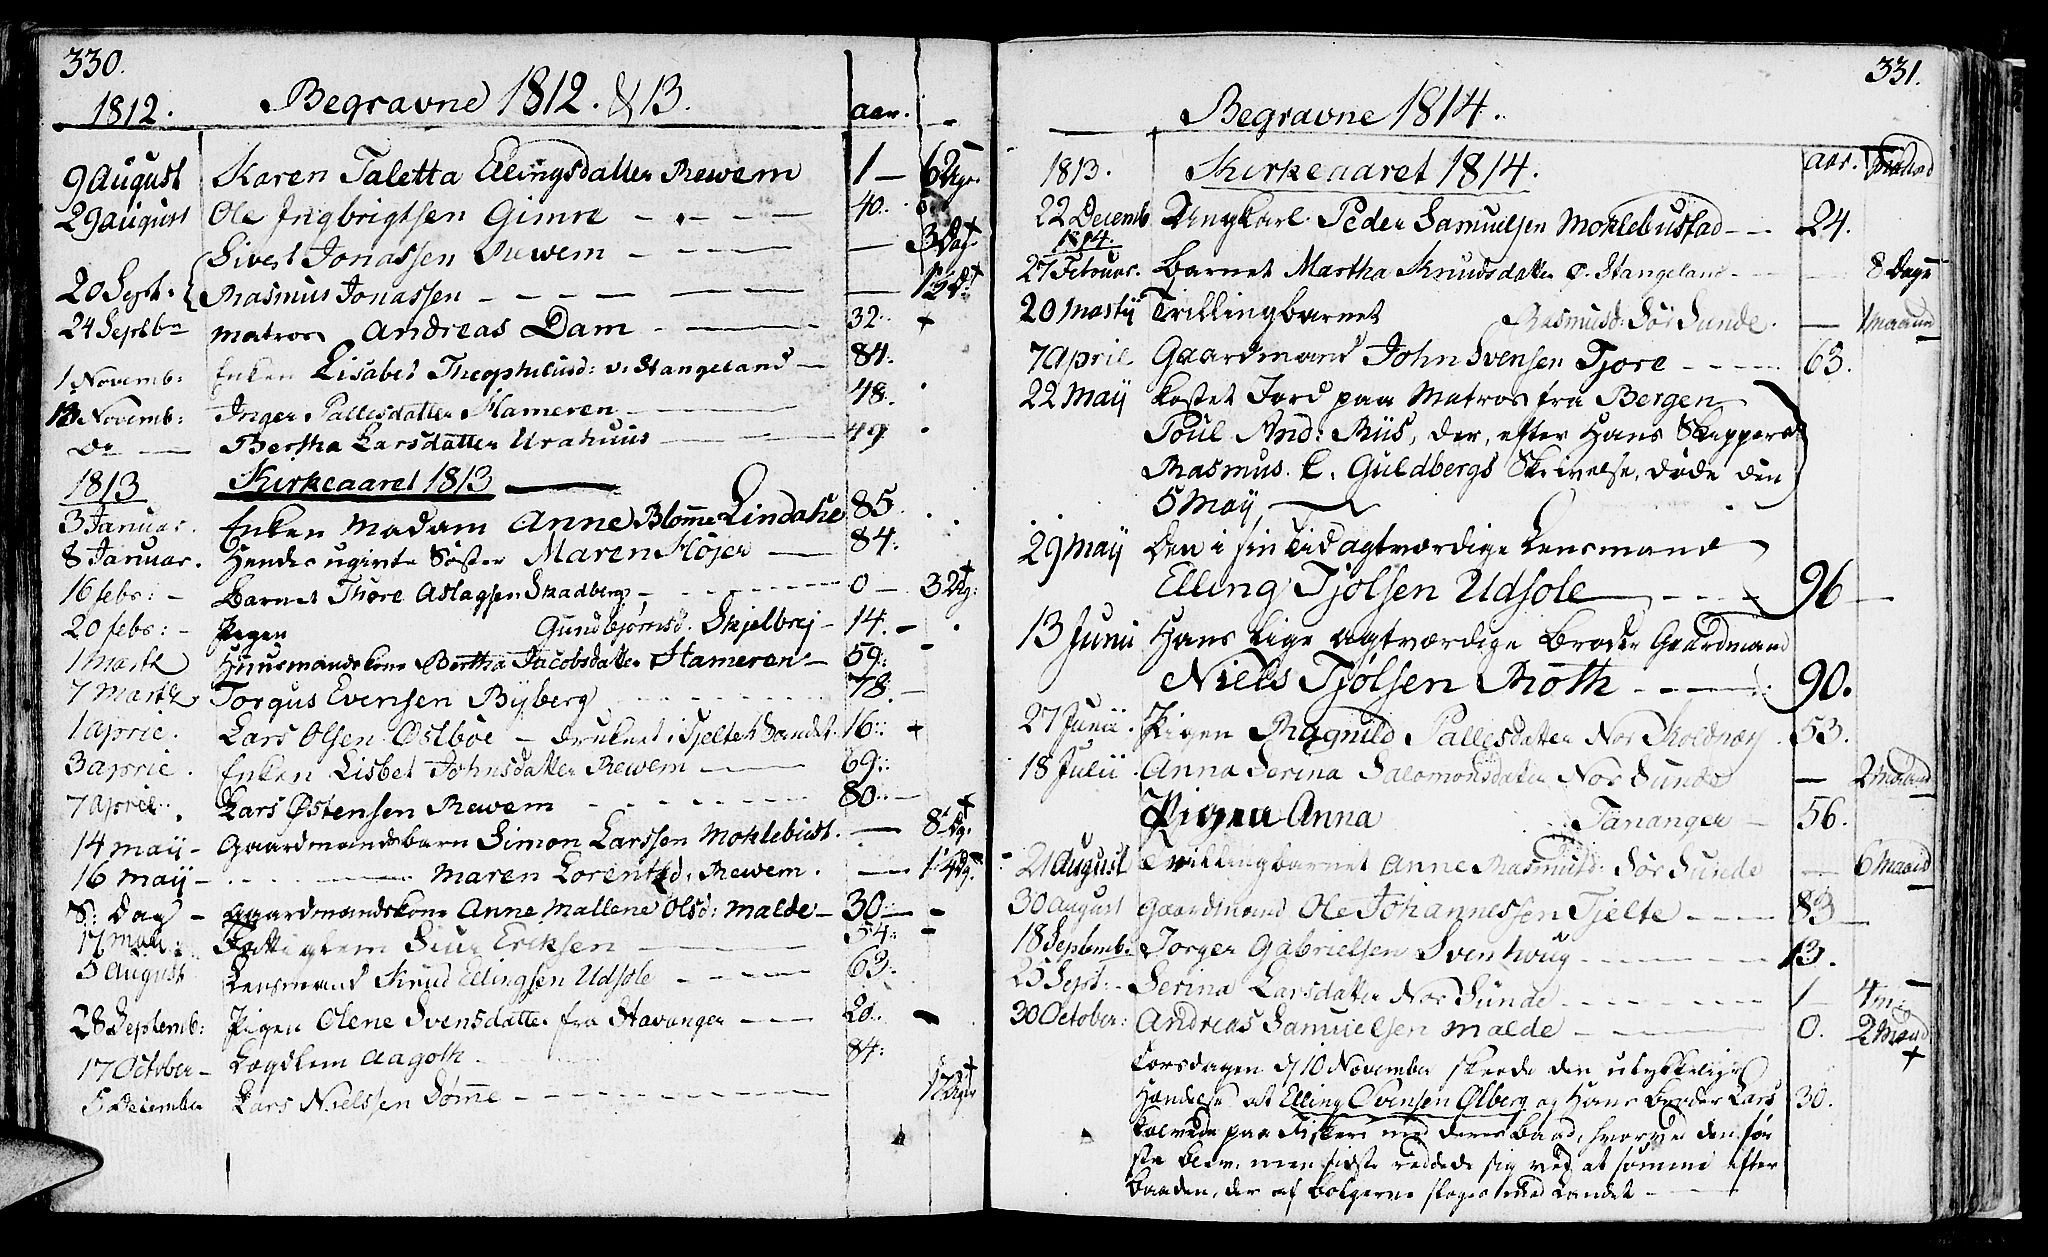 330.
Begravne 1812. & 13.
1812. aar.
9 August Karen Taletta Ellingsdatter Rewem 1 — 6 Uger
29 august Ole Ingbrigtsen Gimre 40.
Sivert Jonassen Rewem — 3 Dag.
20 Sept. Rasmus Jonassen —
24 Septbr matros Andreas Dam 32. +
1 Novemb: Enken Lisabet Theophilusd: v. Stangeland 84.
Novemb: Inger Pallesdatter Hameren 48.
Do Bertha Larsdatter Urahuus 49
1813 Kirkeaaret 1813
3 Januar. Enken Madam Anne Blome Lindahl 85.
8 Januar. Hendes ugivte Søster Maren Høyer 84.
16 febr: Barnet Thore Aslagsen Skadberg 0 — 3 Dg:
20 febr: Pigen Gundbjørnsd. Skjelbrej 14.
1 Martz Huusmandskone Bertha Jacobsdatter Hameren 59.
7 Martz Torgus Evensen Byberg 78
1 april. Lars Olsen Østbøe — druknet i Tjelte Sandet 16: +
3 april. Enken Lisbet Johnsdatter Rewem 69:
7 april. Lars Østensen Rewem 80.
14 maij Gaardmandsbarn Simon Larssen Moklebust. — 8 Dg.
16 maij Maren Lorentzd. Rewem. — 14 Dg.
S: Dag Gaardmandskone Anne Mallene Olsd: Malde 30:
17 maii: Fattiglem Siur Eriksen 54:
5 august Lensmand Knud Ellingsen Udsole 63:
28 Septemb: Pigen Olene Svensdatter fra Stavanger 20.
17 October Lægdlem Aagoth 84:
5 December Lars Nielssen Sømme 17 Uger
331.
Begravne 1814.
1813. Kirkeaaret 1814. aar. Maaned
22 Decemb Ungkarl Peder Samuelsen Moklebustad 24.
1814.
27 Februar. Barnet Martha Knudsdatter Ø. Stangeland 8 Dage
20 Martij Trillingbarnet Rasmusd: Sør Sunde. — 1 maaned
7 April Gaardmand John Svensen Tjore 63.
22 Maij kastet Jord paa Matros fra Bergen
Poul And: Riis, der, efter Hans Skippers
Rasmus L. Guldbergs Skrivelse, døde den
5 May,
29 Maij Den i sin Tid agtværdige Lensmand
Elling Tjølsen Udsole 96
13 Junii Hans lige agtværdige Broder Gaardmand
Niels Tjølsen Røth 90.
27 Junii. Pigen Ragnild Pallesdatter Nor Koldnæs 53.
18 Julii Anna Serina Salomonsdatter Nor Sunde — 2 Maaned
Pigen Anna Tananger 56.
21 August Tvillingbarnet Anne Rasmusd: Sør Sunde — 6 Maaned
30 august Gaardmand Ole Johannessen Tjelte 83
18 Septemb. Torger Gabrielsen Svenhoug 13.
25 Sept: Serina Larsdatter Nor Sunde 1 4 m:
30 October: Andreas Samuelsen Malde 0. 2 Maand
Torsdagen d 10 November skeede den ulykkelige
Hændelse at Elling Ovensen Ølberg og Hans Broder Lars 30.
paa Fiskeri med deres Baad, hvorved den før
ste blev, men sidste reddede sig ved at sømme efter
baaden, der af bølgerne sloges mod Landet